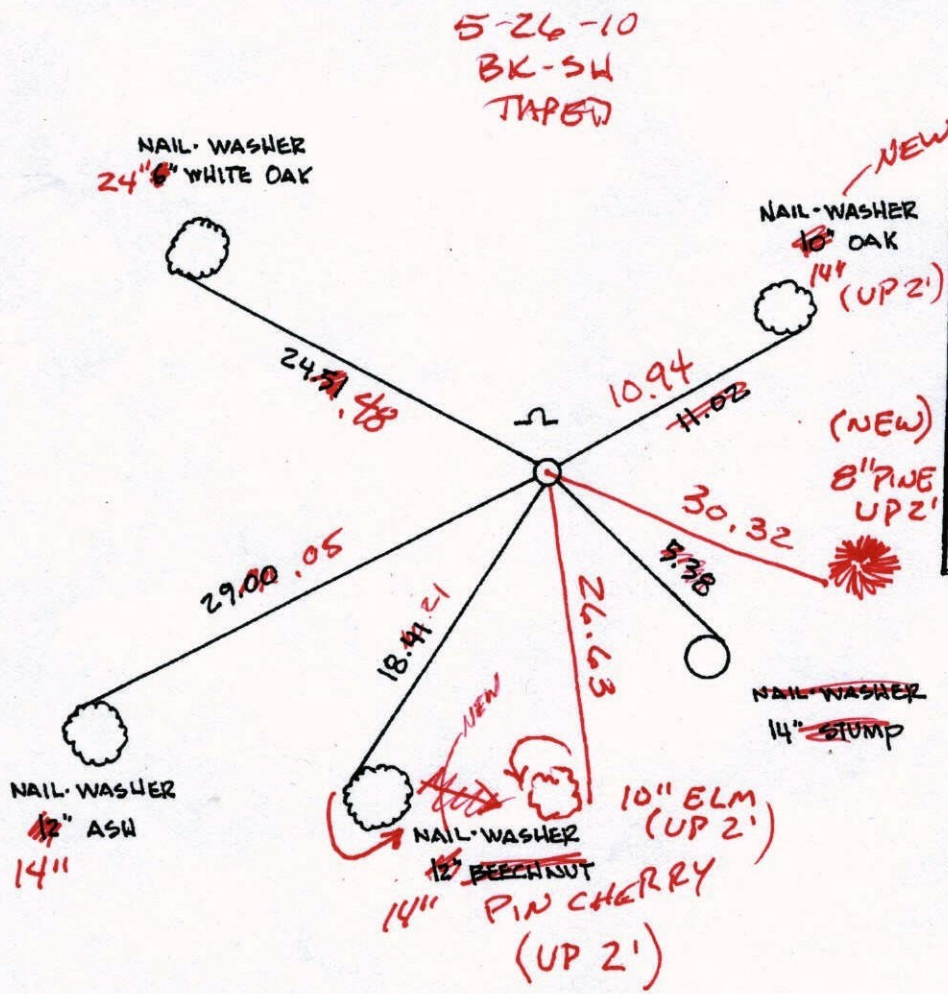 5-26-10
BK-SW
TAPED
NAIL·WASHER
24" 6" WHITE OAK
NEW
NAIL·WASHER
10" OAK
14"
(UP 2')
24.51 .48
10.94
11.02
(NEW)
8" PINE
UP 2'
30.32
5.38
29.00 .05
18.41 .21
26.63
NAIL·WASHER
14" STUMP
NEW
NAIL·WASHER
12" ASH
14"
10" ELM
(UP 2')
NAIL·WASHER
12" BEECHNUT
14" PIN CHERRY
(UP 2')